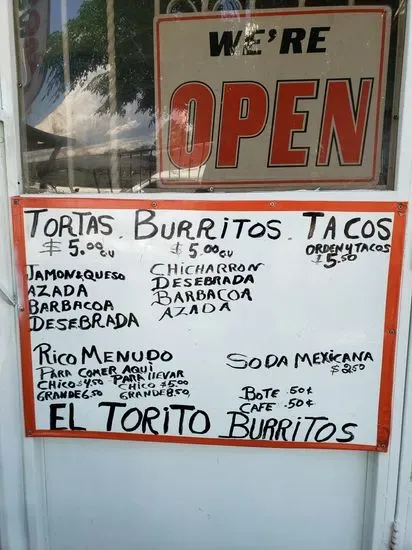 WE'RE
OPEN
TORTAS. BURRITOS. TACOS
$5.00 CU $5.00 CU ORDEN 4 TACOS
$5.50
JAMON & QUESO CHICHARRON
AZADA DESEBRADA
BARBACOA BARBACOA
DESEBRADA AZADA
RICO MENUDO SODA MEXICANA
PARA COMER AQUI PARA LLEVAR $2.50
CHICO $4.50 CHICO $5.00 BOTE .50¢
GRANDE 6.50 GRANDE 8.50 CAFE .50¢
EL TORITO BURRITOS